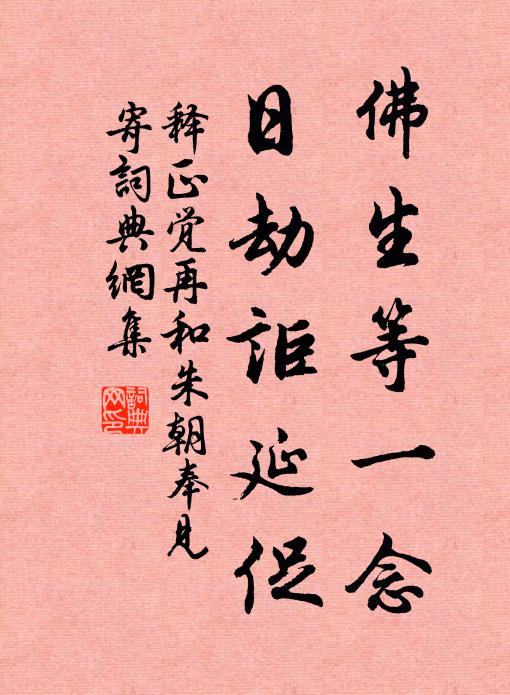 佛生等一念
日劫詎延促
释正觉再和朱朝奉见
寄詞典網集
詞典网印